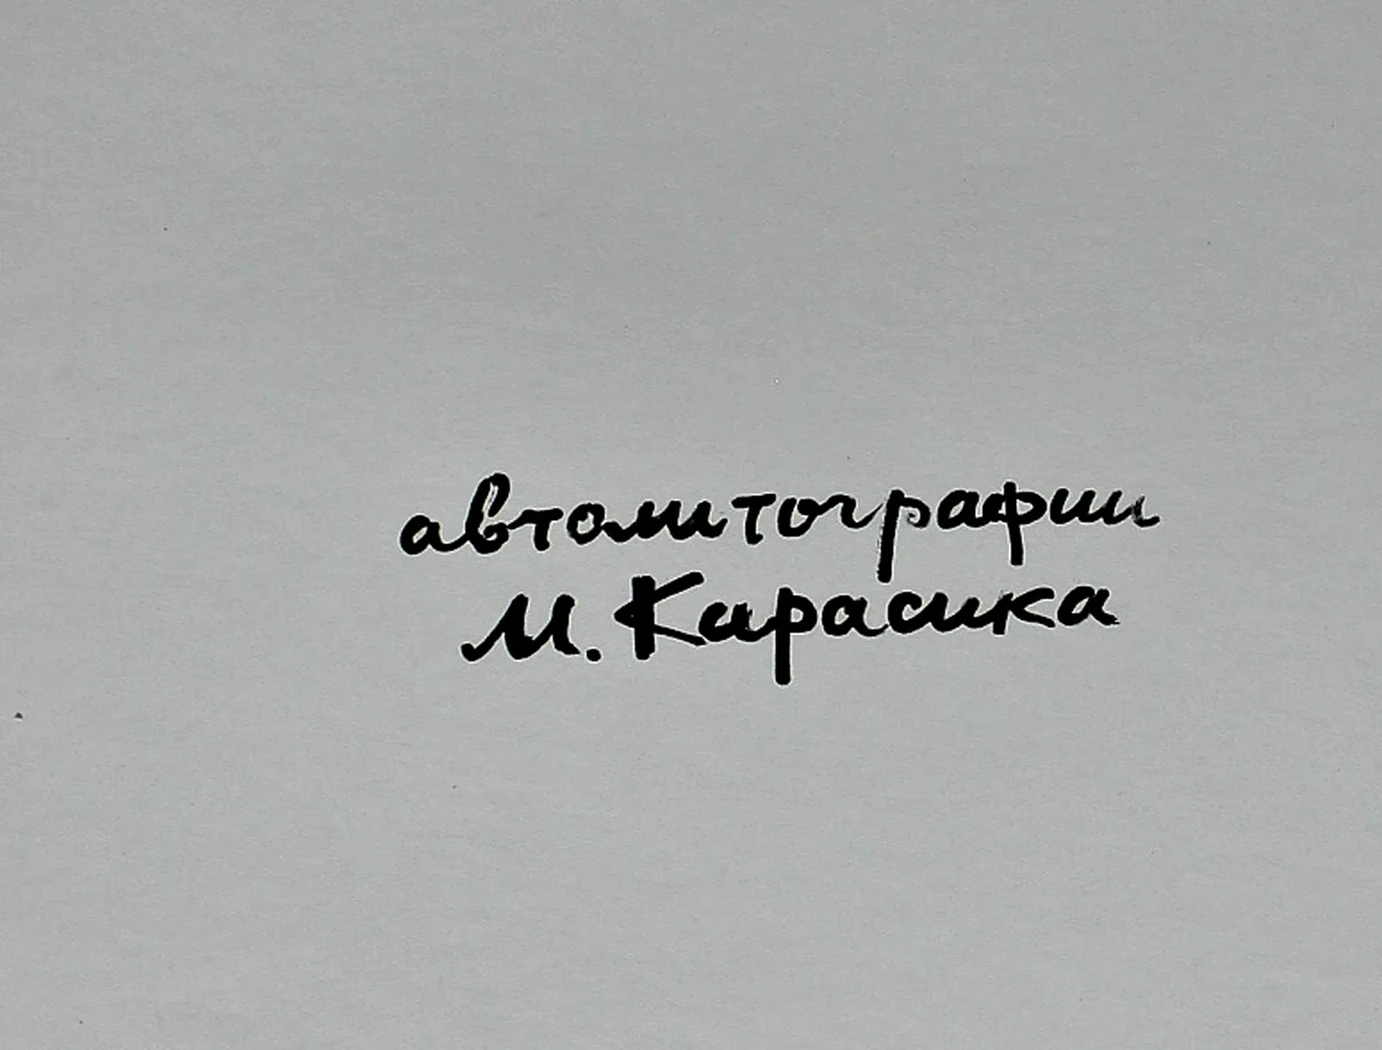 автолитографии
М. Карасика